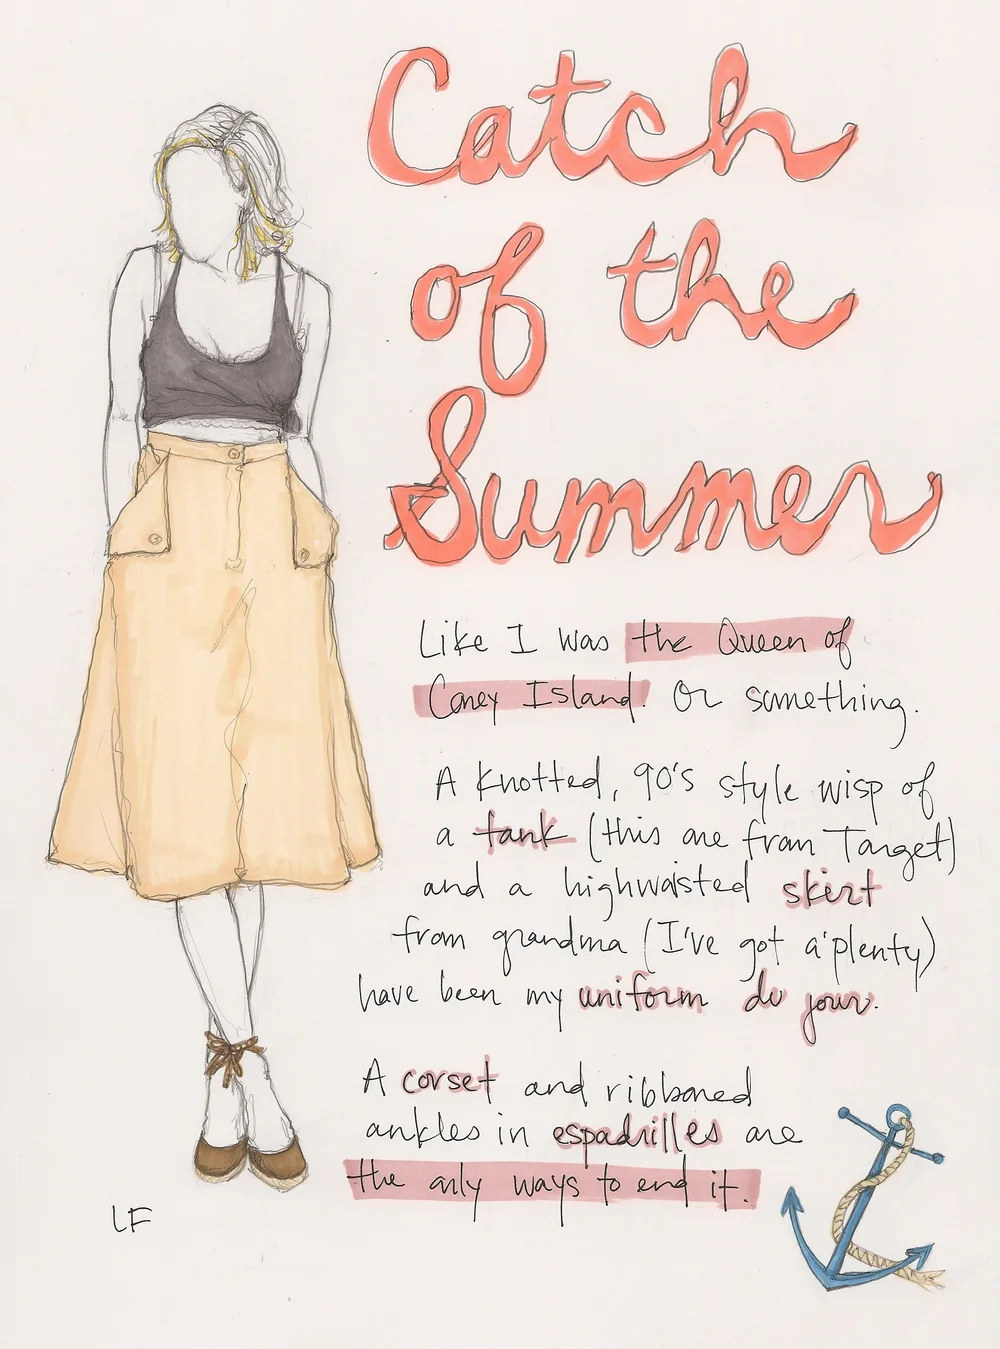 Catch
of the
Summer
Like I was the Queen of
Coney Island. Or something.
A knotted, 90's style wisp of
a tank (this one from Target)
and a highwaisted skirt
from grandma (I've got a'plenty)
have been my uniform du jour.
A corset and ribboned
ankles in espadrilles are
the only ways to end it.
LF